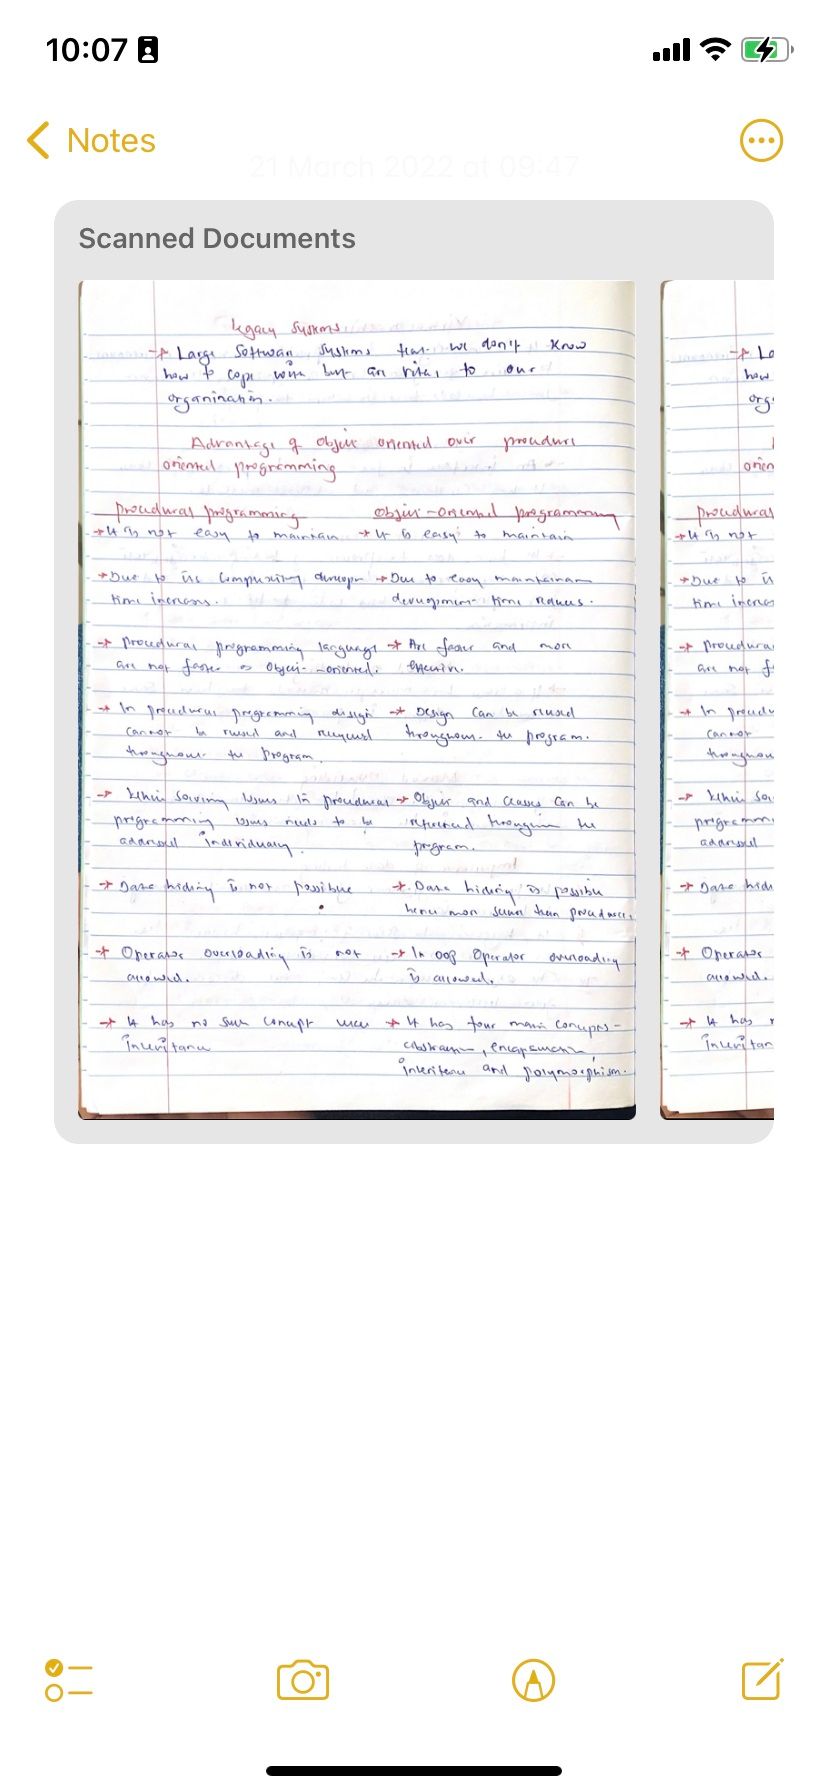 10:07
Notes
21 March 2022 at 09:47
Scanned Documents
Legacy Systems
→ Large Software Systems that we don't know
how to cope with but are vital to our
organization.
Advantage of object oriented over procedure
oriented programming
procedural programming
→ It is not easy to maintain
→ Due to its Complexity
time increases.
→ procedural programming language
are not faster as Object-oriented.
→ In procedural programming design
cannot be reused and
throughout the program.
→ While solving issues in procedural
programming issues needs to be
addressed individually.
→ Data hiding is not possible
→ Operator overloading is not
allowed.
→ It has no such concept
Inheritance
Object-oriented programming
→ It is easy to maintain
→ Due to easy
development time reduces.
→ Are faster and more
efficient.
→ Design can be reused
throughout the program.
→ Object and classes can be
referenced the
program.
→ Data hiding is possible
hence more secure than procedural.
→ In OOP Operator overloading
is allowed.
→ It has four main concepts -
abstraction, encapsulation,
Inheritence and polymorphism.
→ La
how
org
orien
procedural
→ It is not
→ Due to it
time increa
→ procedura
are not f
→ In procedu
cannot
throughou
→ While sol
programm
addressed
→ Data hidi
→ Operator
allowed.
→ It has n
Inheritan